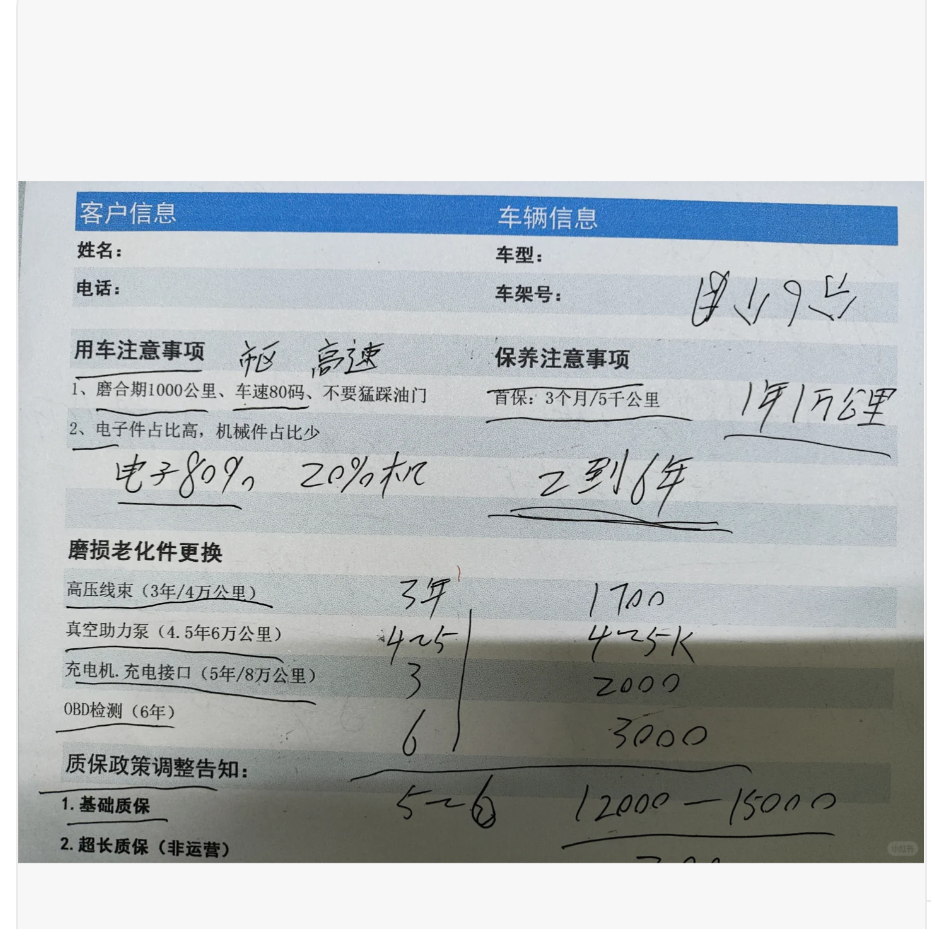 客户信息 车辆信息
姓名： 车型：
电话： 车架号：
用车注意事项 市区 高速 保养注意事项
1、磨合期1000公里、车速80码、不要猛踩油门 首保：3个月/5千公里 1年1万公里
2、电子件占比高，机械件占比少
电子80% 20%机 2到6年
磨损老化件更换
高压线束（3年/4万公里） 3年 1700
真空助力泵（4.5年6万公里） 4~5 4~5K
充电机.充电接口（5年/8万公里） 3 2000
OBD检测（6年） 6 3000
质保政策调整告知：
1. 基础质保 5~6 12000-15000
2. 超长质保（非运营）
小红书